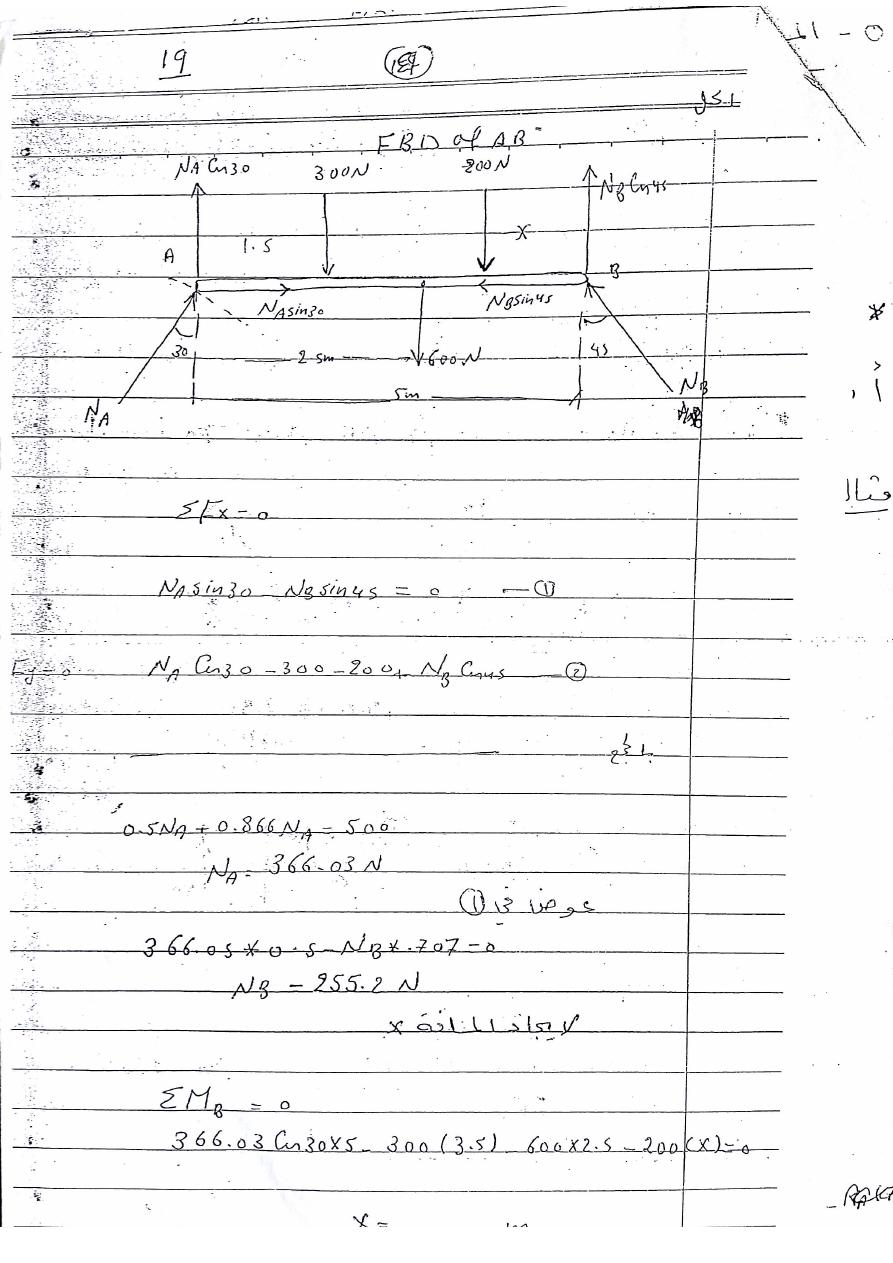 19
الحل
FBD of AB
NA Cos30 300N 200N NB Cos45
A 1.5 X B
NAsin30 NBsin45
30 2.5m 600N 45
5m
NA NB
مثال
ΣFx = 0
NAsin30 - NBsin45 = 0 — ①
Fy=0 NA Cos30 - 300 - 200 + NB Cos45 — ②
بالجمع
0.5NA + 0.866NA = 500
NA = 366.03 N
عوض في ①
366.03 * 0.5 - NB * .707 = 0
NB = 255.2 N
لايجاد المسافة x
ΣMB = 0
366.03 Cos30 x 5 - 300 (3.5) - 600x2.5 - 200 (X) = 0
X = m